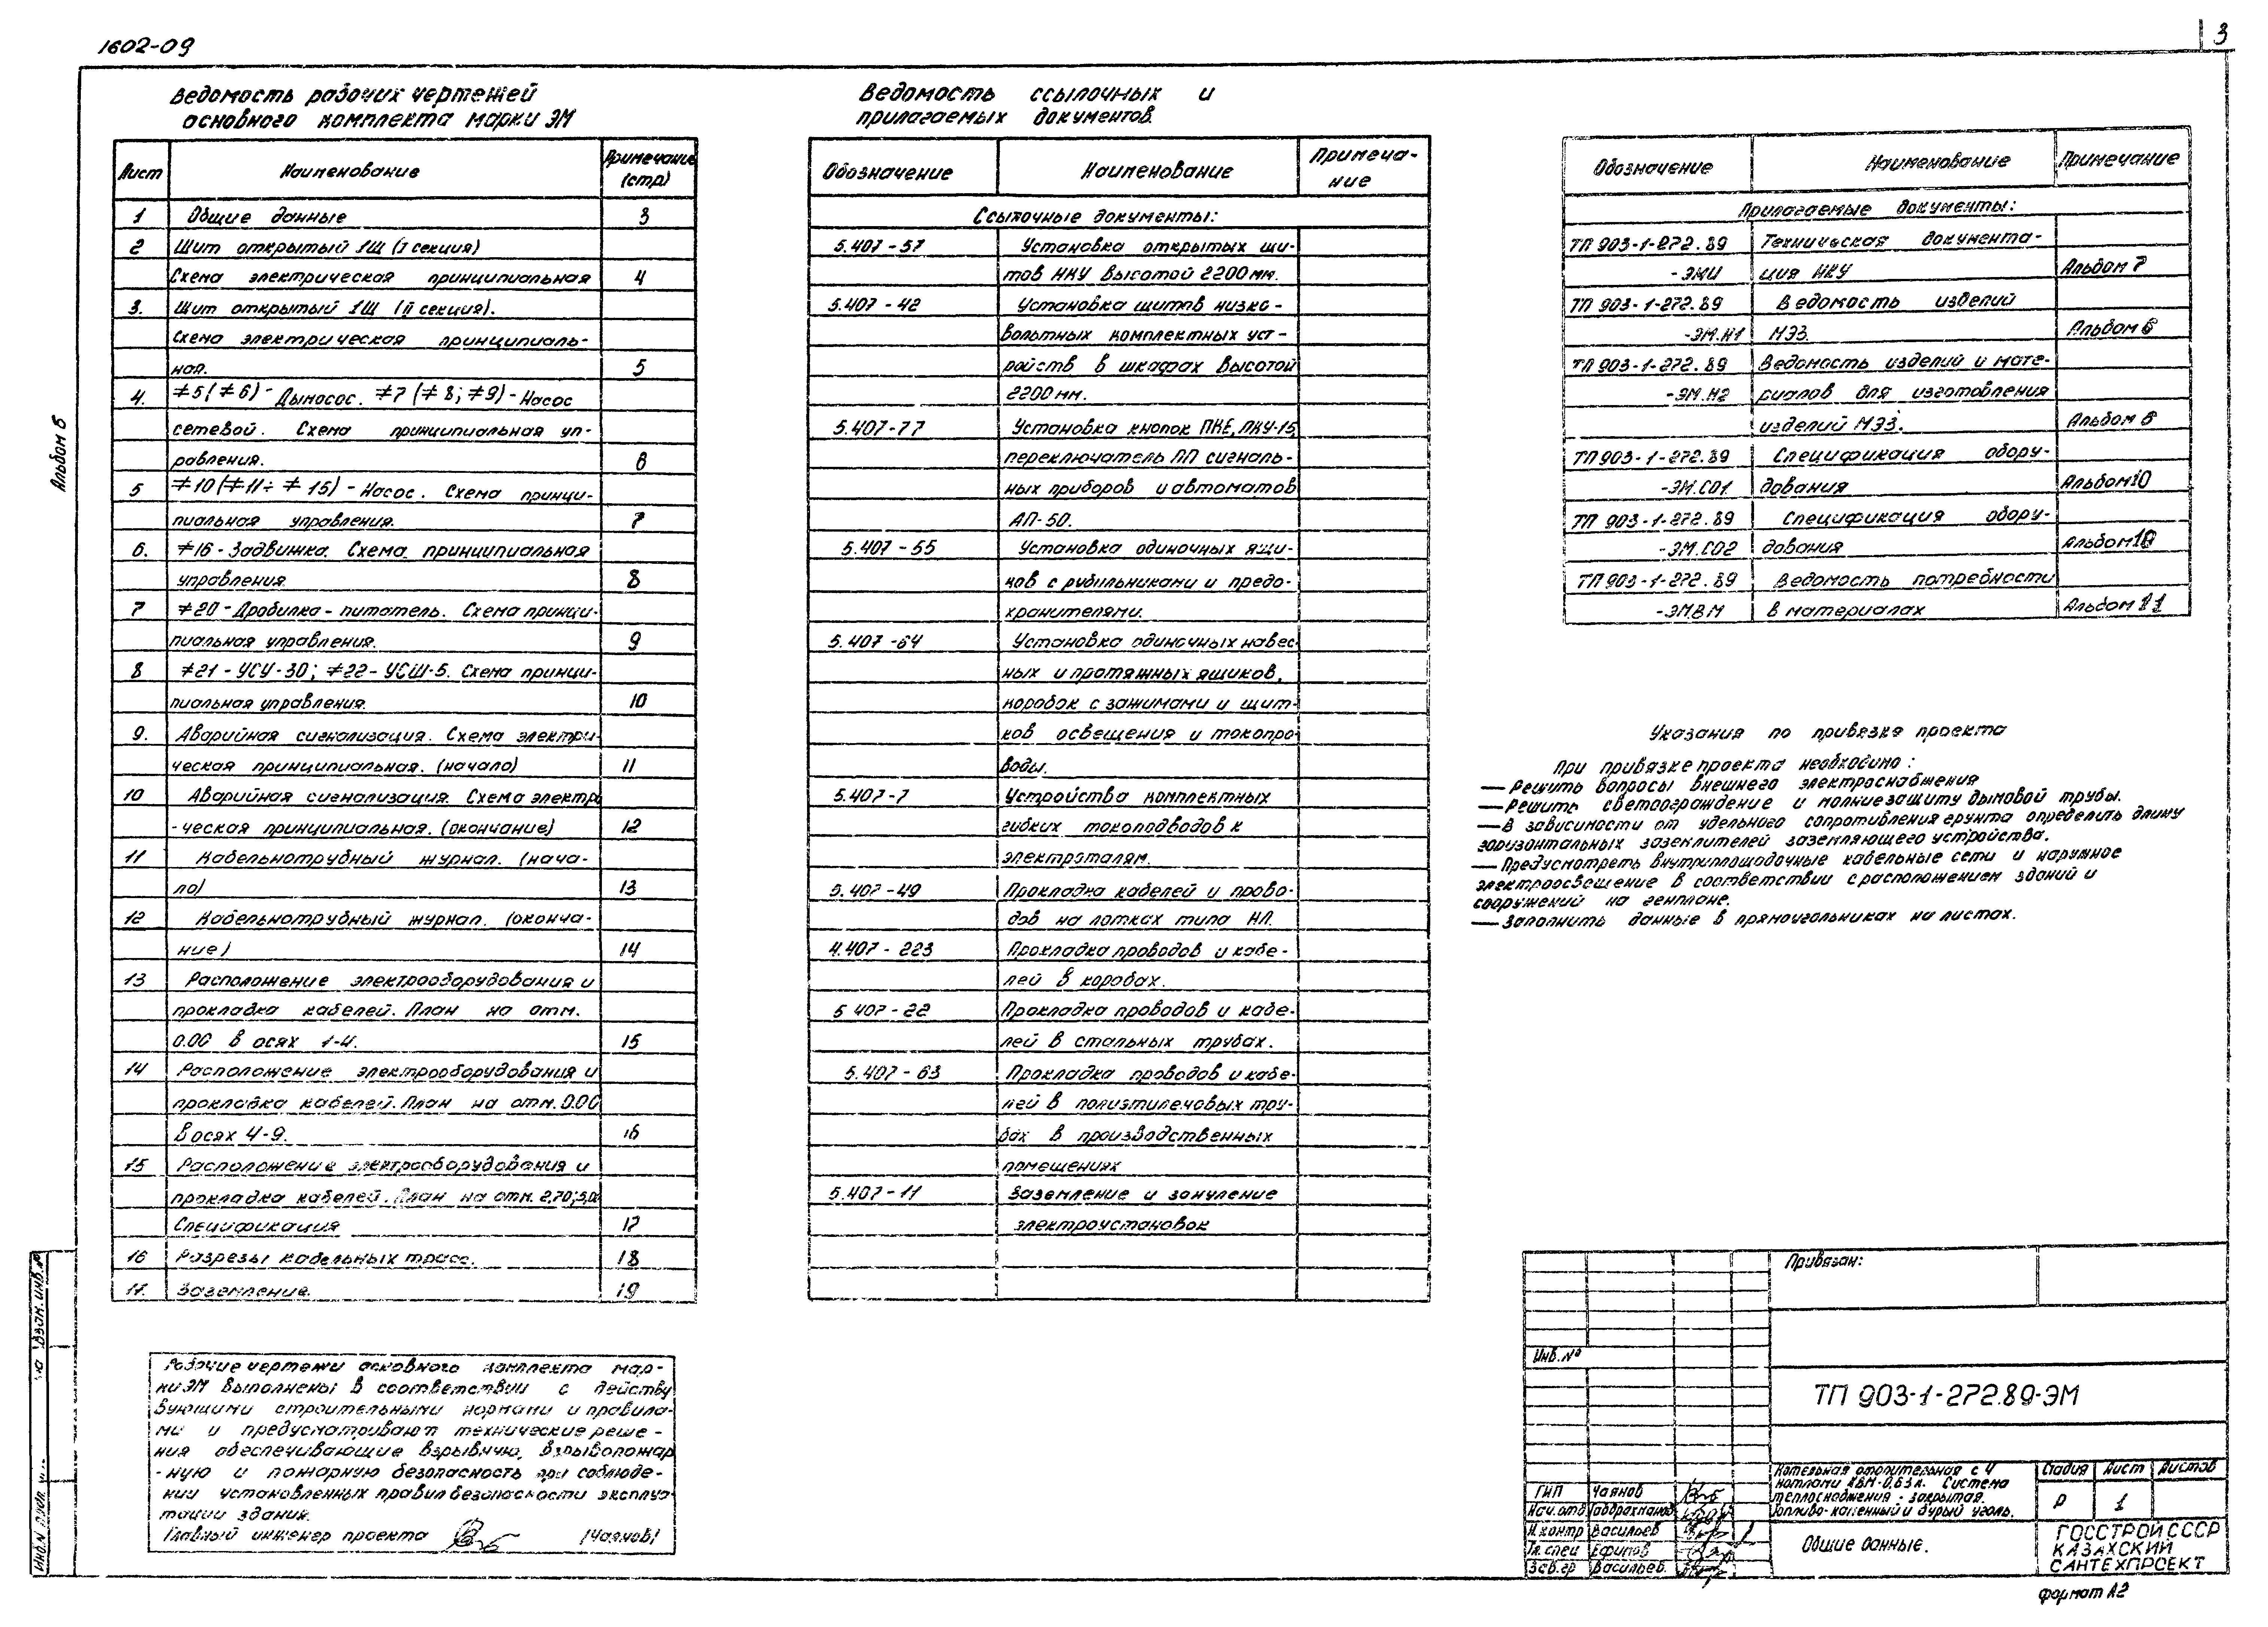 1602-09
3
Ведомость рабочих чертежей
основного комплекта марки ЭМ
Лист Наименование Примечание (стр)
1 Общие данные 3
2 Щит открытый 1Щ (I секция)
Схема электрическая принципиальная 4
3. Щит открытый 1Щ (II секция).
Схема электрическая принципиаль-
ная. 5
4. ≠5(≠6)- Дымосос. ≠7 (≠8; ≠9)- Насос
сетевой. Схема принципиальная уп-
равления. 6
5 ≠10(≠11÷ ≠15) - Насос. Схема принци-
пиальная управления. 7
6. ≠16 - Задвижка. Схема принципиальная
управления. 8
7 ≠20 - Дробилка - питатель. Схема принци-
пиальная управления. 9
8 ≠21 - УСУ-30; ≠22 - УСШ-5. Схема принци-
пиальная управления. 10
9. Аварийная сигнализация. Схема электри-
ческая принципиальная. (начало) 11
10 Аварийная сигнализация. Схема электри
-ческая принципиальная. (окончание) 12
11 Кабельнотрубный журнал. (нача-
ло) 13
12 Кабельнотрубный журнал. (оконча-
ние) 14
13 Расположение электрооборудования и
прокладка кабелей. План на отм.
0.00 в осях 1-4. 15
14 Расположение электрооборудования и
прокладка кабелей. План на отм. 0.00
в осях 4-9. 16
15 Расположение электрооборудования и
прокладка кабелей. План на отм. 2,70;
Спецификация 17
16 Разрезы кабельных трасс. 18
17. Заземление. 19
Рабочие чертежи основного комплекта мар-
ки ЭМ выполнены в соответствии с действу
вующими строительными нормами и правила-
ми и предусматривают технические реше-
ния обеспечивающие взрывную, взрывопожар
-ную и пожарную безопасность при соблюде-
нии установленных правил безопасности эксплуа-
тации здания.
Главный инженер проекта /Чаянов/
Ведомость ссылочных и
прилагаемых документов.
Обозначение Наименование Примеча-
ние
Ссылочные документы:
5.407-57 Установка открытых щи-
тов НКУ высотой 2200 мм.
5.407-42 Установка щитв низко-
вольтных комплектных уст-
ройств в шкафах высотой
2200 мм.
5.407-77 Установка кнопок ПКЕ, ПКУ-15,
переключатель ПП сигналь-
ных приборов и автоматов
АП-50.
5.407-55 Установка одиночных ящи-
ков с рубильниками и предо-
хранителями.
5.407-64 Установка одиночных навес-
ных и протяжных ящиков,
коробок с зажимами и щит-
ков освещения и токопро-
воды.
5.407-7 Устройства комплектных
гибких токоподводов к
электроталям.
5.407-49 Прокладка кабелей и прово-
дов на лотках типа НЛ.
4.407-223 Прокладка проводов и кабе-
лей в коробах.
5.407-22 Прокладка проводов и кабе-
лей в стальных трубах.
5.407-63 Прокладка проводов и кабе-
лей в полиэтиленовых тру-
бах в производственных
помещениях
5.407-11 Заземление и зануление
электроустановок
Обозначение Наименование Примечание
Прилагаемые документы:
ТП 903-1-272.89 Техническая документа-
-ЭМИ ция НКУ Альбом 7
ТП 903-1-272.89 Ведомость изделий
-ЭМ.И1 МЭЗ. Альбом 6
ТП 903-1-272.89 Ведомость изделий и мате-
-ЭМ.И2 риалов для изготовления
изделий МЭЗ. Альбом 6
ТП 903-1-272.89 Спецификация обору-
-ЭМ.СО1 дования Альбом 10
ТП 903-1-272.89 Спецификация обору-
-ЭМ.СО2 дования Альбом 10
ТП 903-1-272.89 Ведомость потребности
-ЭМ.ВМ в материалах Альбом 11
Указания по привязке проекта
При привязке проекта необходимо:
— Решить вопросы внешнего электроснабжения
— Решить светоограждение и молниезащиту дымовой трубы.
— В зависимости от удельного сопротивления грунта определить длину
горизонтальных заземлителей заземляющего устройства.
— Предусмотреть внутриплощадочные кабельные сети и наружное
электроосвещение в соответствии с расположением зданий и
сооружений на генплане.
— Заполнить данные в прямоугольниках на листах.
Привязан:
Инв. №
ТП 903-1-272.89-ЭМ
Котельная отопительная с 4
котлами КВМ-0,63к. Система
теплоснабжения - закрытая.
Топливо-каменный и бурый уголь.
Стадия Лист Листов
Р 1
ГИП Чаянов
Нач. отд Габдрахманов
Н. контр Васильев
Гл. спец Ефимов
Зав. гр Васильев.
Общие данные.
ГОССТРОЙ СССР
КАЗАХСКИЙ
САНТЕХПРОЕКТ
Формат А2
Альбом 6
Взам. инв. №
Инв. № подл.